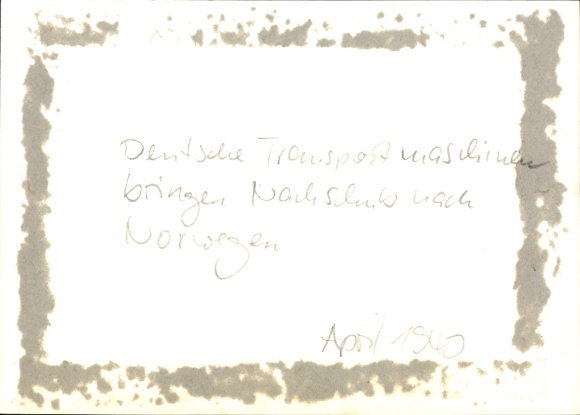 Deutsche Transportmaschinen
bringen Nachschub nach
Norwegen
April 1940